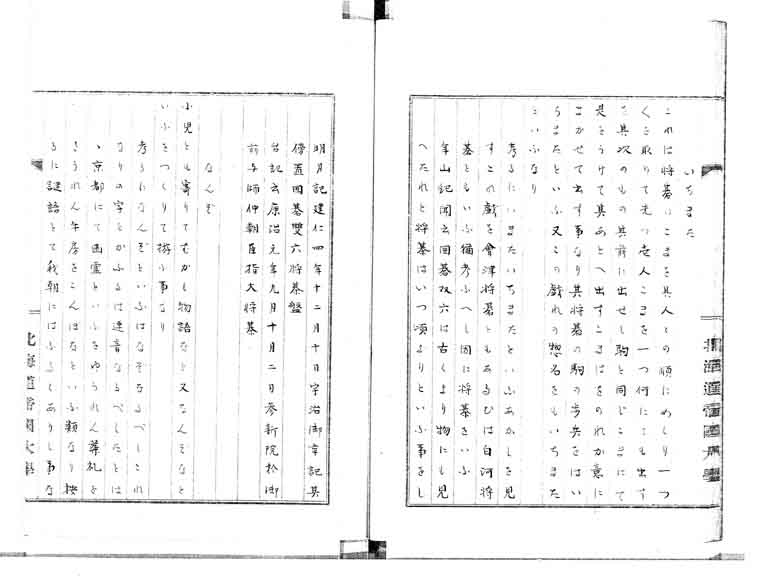 いちまた
これは将棋にこまを其人との順にめくり一つ
くを取りて先つ壱人こまを一つ何にても出す
を其次のもの其前に出せし駒と同じこまにて
是をうけて其あとへ出すこまはをのれか意に
まかせて出す事なり其将棋の駒の歩兵をはい
ちまたといふ又この戯れの惣名をもいちまた
といふなり
考るにいまたいちまたといふあかしを見
すこの戯を會津将棋ともあるひは白河将
棊ともいふ猶考ふへし因に将棊をいふ
年山紀聞云囲碁双六は古くより物にも見
へたれと将棊はいつ頃よりといふ事をし
明月記建仁四年十二月十日宇治御幸記其
傍置囲碁雙六将棊盤
台記云康治元年九月十二日参新院於御
前与師仲朝臣指大将棊
なんぞ
小児とも寄りてむかし物語なと又なんぞなと
いふをつくりて遊ふ事なり
考るになんぞといふはなぞなるべしこれ
なりの字とかふるは連音なるべしたとは
ゝ京都にて幽霊といふをゆうれん葬礼を
そうれん午房をこんほなといふ類なり按
るに謎語とて我朝にはふるくありし事な